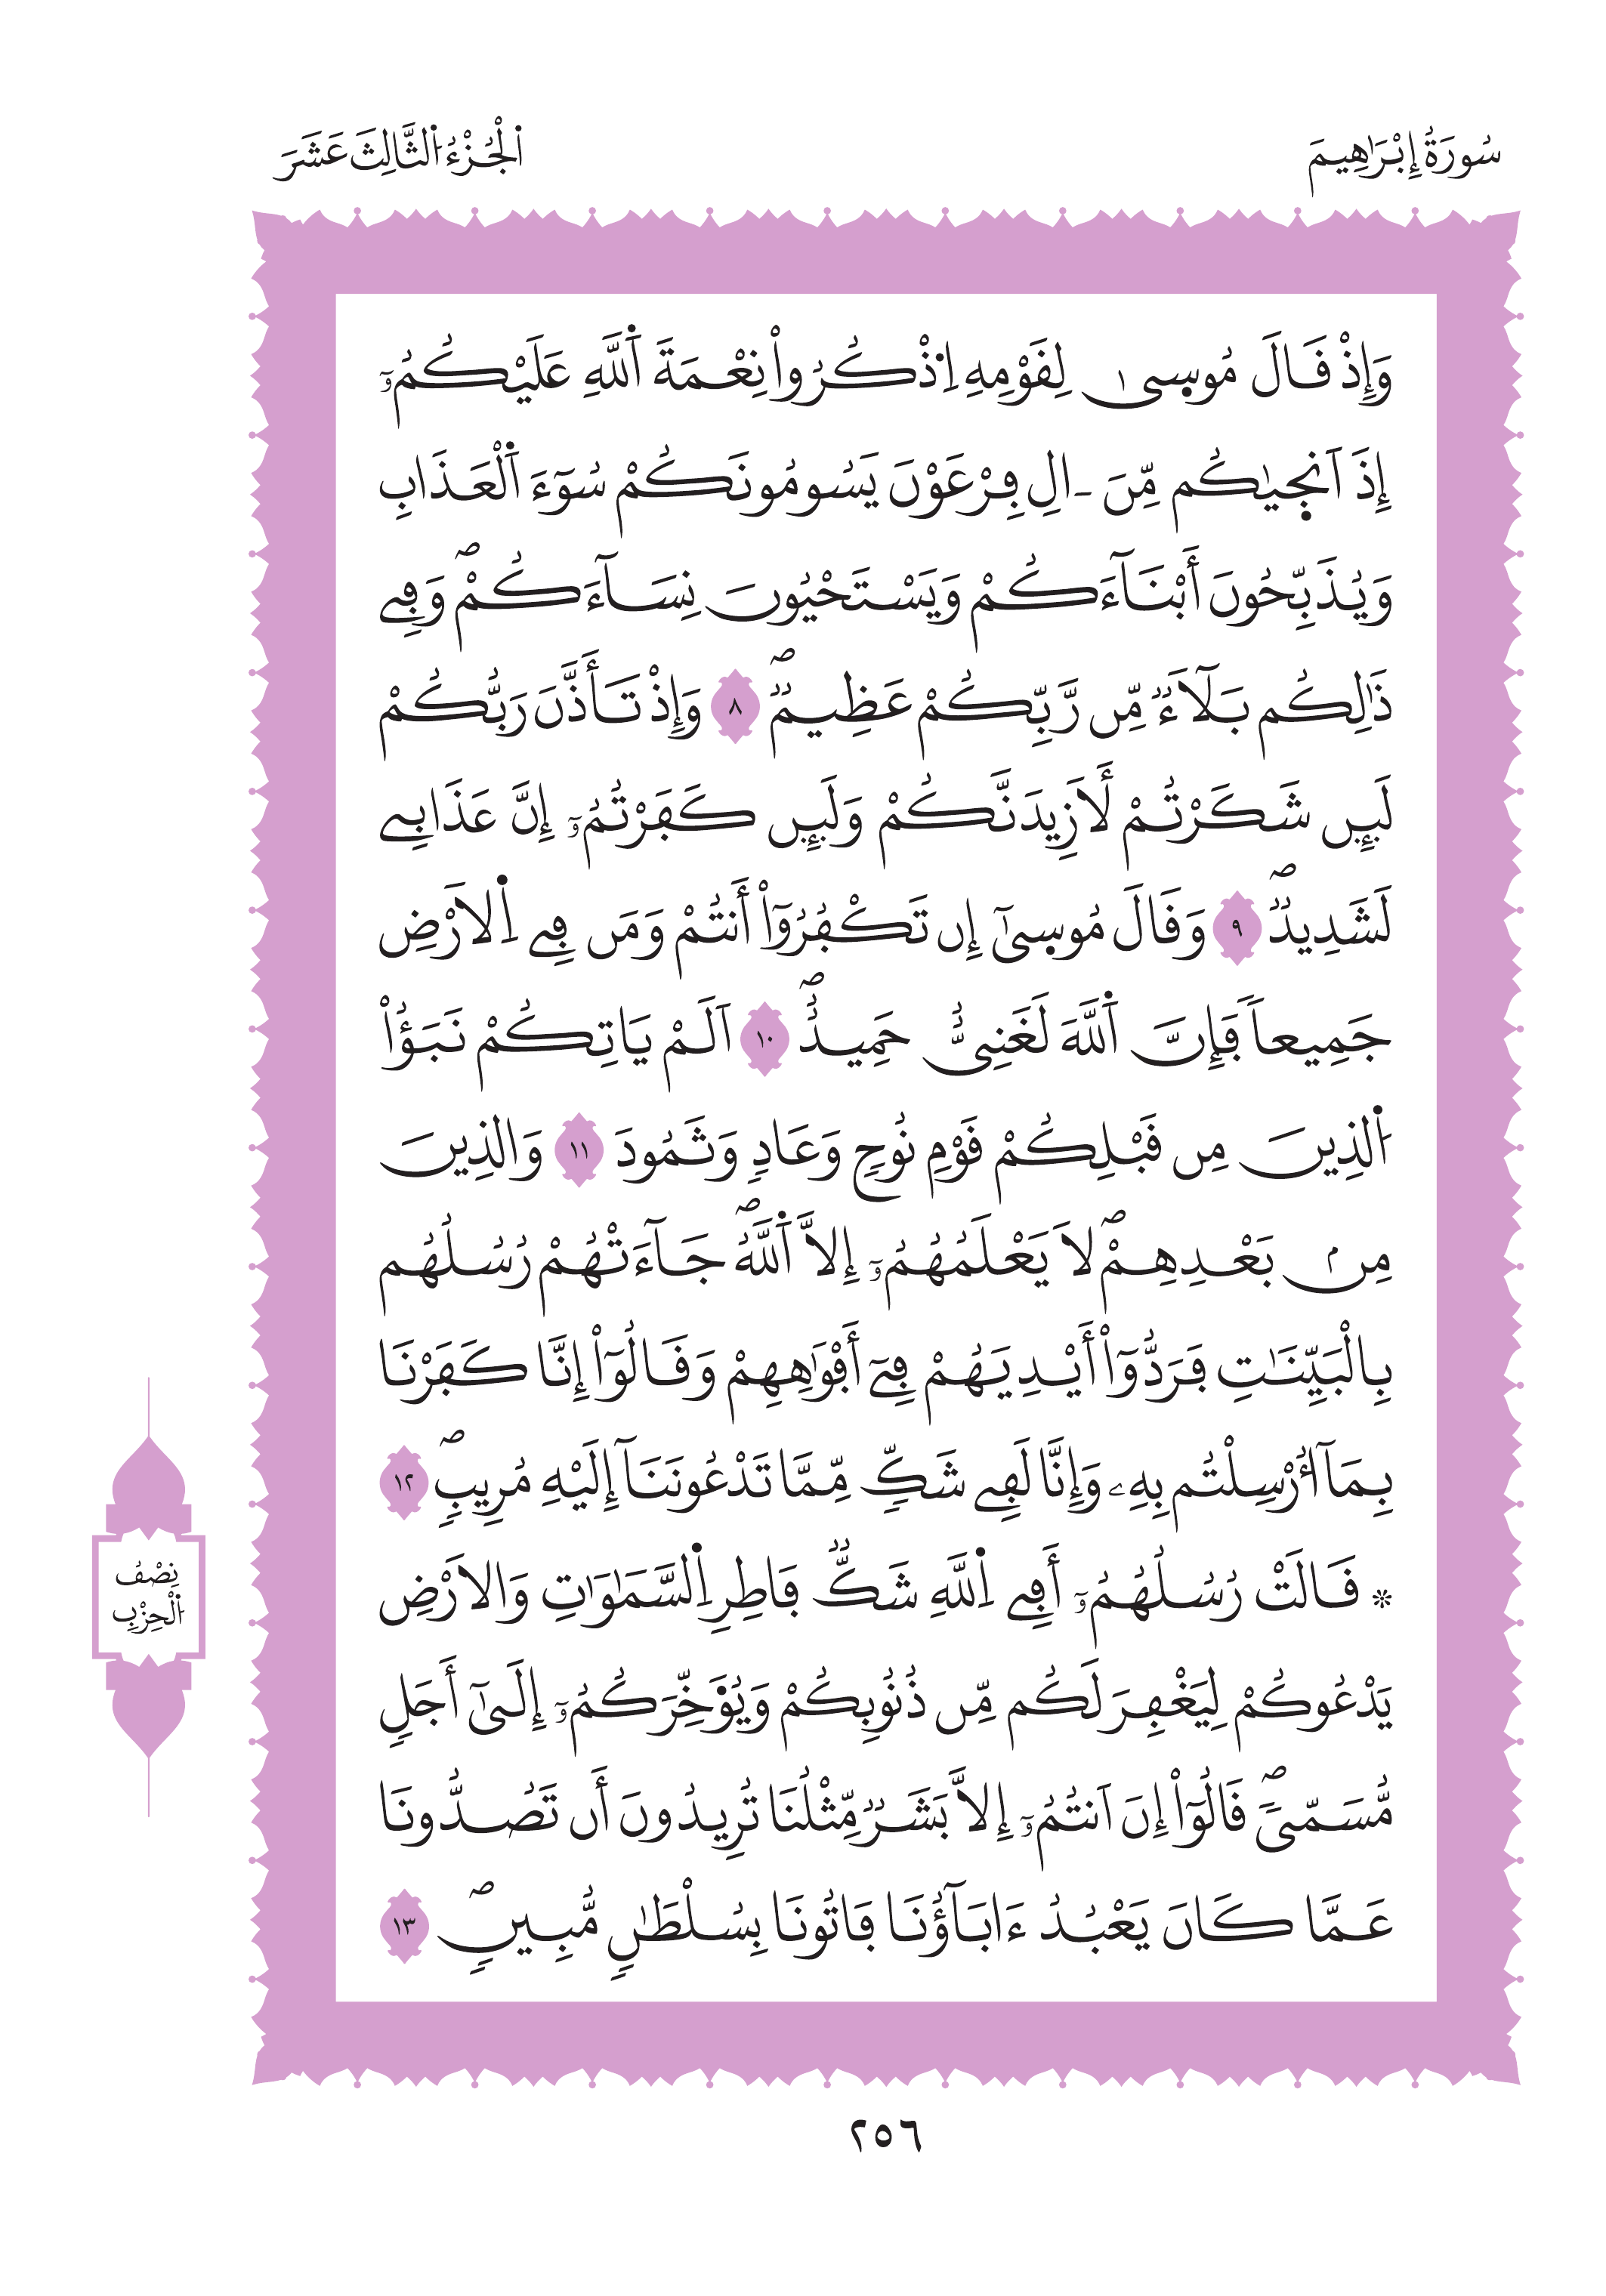 سُورَةُ إِبْرَٰهِيمَ
اَ۬لْجُزْءُ اُ۬لثَّالِثَ عَشَرَ
وَإِذْ قَالَ مُوس۪ىٰ لِقَوْمِهِ اِ۟ذْكُرُواْ نِعْمَةَ اَ۬للَّهِ عَلَيْكُمُۥٓ
إِذَ اَنج۪يٰكُم مِّنَ ـالِ فِرْعَوْنَ يَسُومُونَكُمْ سُوٓءَ اَ۬لْعَذَابِ
وَيُذَبِّحُونَ أَبْنَآءَكُمْ وَيَسْتَحْيُونَ نِسَآءَكُمْۖ وَفِے
ذَٰلِكُم بَلَآءٞ مِّن رَّبِّكُمْ عَظِيمٞۖ ٨ وَإِذْ تَأَذَّنَ رَبُّكُمْ
لَئِن شَكَرْتُمْ لَأَزِيدَنَّكُمْ وَلَئِن كَفَرْتُمُۥٓ إِنَّ عَذَابِے
لَشَدِيدٞۖ ٩ وَقَالَ مُوس۪ىٰٓ إِن تَكْفُرُوٓاْ أَنتُمْ وَمَن فِے اِ۬لَارْضِ
جَمِيعاٗ فَإِنَّ اَ۬للَّهَ لَغَنِيٌّ حَمِيدٌۖ ١٠ اَلَمْ يَاتِكُمْ نَبَؤُاْ
اُ۬لذِينَ مِن قَبْلِكُمْ قَوْمِ نُوحٖ وَعَادٖ وَثَمُودَ ١١ وَالذِينَ
مِنۢ بَعْدِهِمْۖ لَا يَعْلَمُهُمُۥٓ إِلَّا اَ۬للَّهُۖ جَآءَتْهُمْ رُسُلُهُم
بِالْبَيِّنَٰتِ فَرَدُّوٓاْ أَيْدِيَهُمْ فِےٓ أَفْوَٰهِهِمْ وَقَالُوٓاْ إِنَّا كَفَرْنَا
بِمَآ أُرْسِلْتُم بِهِۦ وَإِنَّا لَفِے شَكّٖ مِّمَّا تَدْعُونَنَآ إِلَيْهِ مُرِيبٖۖ ١٢
۞ قَالَتْ رُسُلُهُمُۥٓ أَفِے اِ۬للَّهِ شَكّٞ فَاطِرِ اِ۬لسَّمَٰوَٰتِ وَالَارْضِ
يَدْعُوكُمْ لِيَغْفِرَ لَكُم مِّن ذُنُوبِكُمْ وَيُوَ۬خِّرَكُمُۥٓ إِلَىٰٓ أَجَلٖ
مُّسَمّيٗۖ قَالُوٓاْ إِنَ اَنتُمُۥٓ إِلَّا بَشَرٞ مِّثْلُنَا تُرِيدُونَ أَن تَصُدُّونَا
عَمَّا كَانَ يَعْبُدُ ءَابَآؤُنَا فَاتُونَا بِسُلْطَٰنٖ مُّبِينٖۖ ١٣
نِصْفُ
اُ۬لْحِزْبِ
٢٥٦